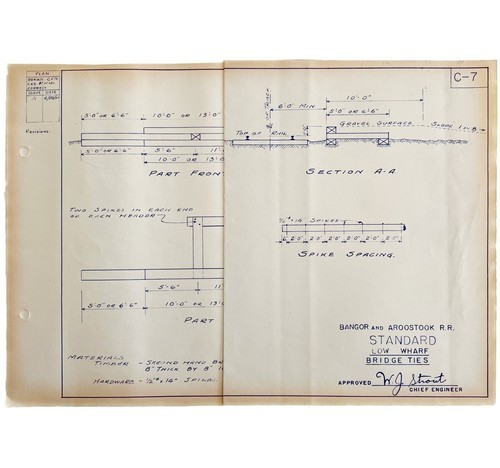 PLAN
CORRECT
Revisions:
C-7
5'-0" OR 6'-6"
10'-0" OR 13'-0
5'-6"
11'-
10'-0" OR 13'-
PART FRON
TWO SPIKES IN EACH END
OF EACH HEADER
5'-6"
11'
5'-0" OR 6'-6"
10'-0" OR
PART
MATERIALS
TIMBER - SECOND HAND BR
8" THICK BY 8"
HARDWARE - 1/2" x 14" SPIKES
℄ OF TRACK
10'-0"
6'-0" MIN.
5'-0" OR 6'-6"
TOP OF RAIL
GRAVEL SURFACE
SECTION A-A
1/2" x 14" SPIKES
6" 2'-0" 2'-0" 2'-0" 2'-0" 2'-0" 2'-0" 6"
SPIKE SPACING.
BANGOR AND AROOSTOOK R.R.
STANDARD
LOW WHARF
BRIDGE TIES
APPROVED W.J. Strout
CHIEF ENGINEER